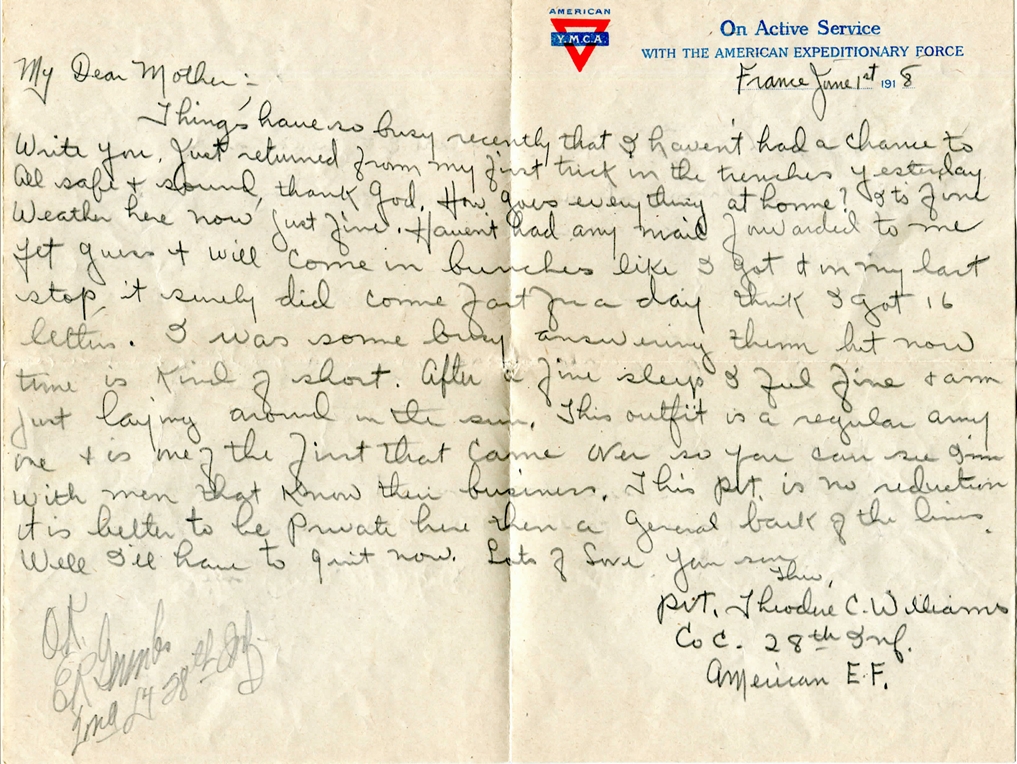 AMERICAN
Y.M.C.A.
On Active Service
WITH THE AMERICAN EXPEDITIONARY FORCE
France June 1st 1918
My Dear Mother:-
Things have so busy recently that I haven't had a chance to
Write you. Just returned from my first trick in the trenches yesterday
All safe + sound, thank God. How goes everything at home? Is to fine
Weather here now just fine. Haven't had any mail forwarded to me
yet guess it will come in bunches like I got it in my last
stop, it surely did come fast for a day think I got 16
letters. I was some busy answering them but now
time is kind of short. After a fine sleep I feel fine + am
just laying around in the sun. This outfit is a regular army
one + is one of the first that came over so you can see I'm
with men that know their business. This pvt. is no reduction
it is better to be Private here then a General back of the lines.
Well I'll have to quit now. Lots of Love your son
Theo,
Pvt. Theodore C. Williams
Co C. 28th Inf.
American E.F.
O.K.
E R
28th Inf.